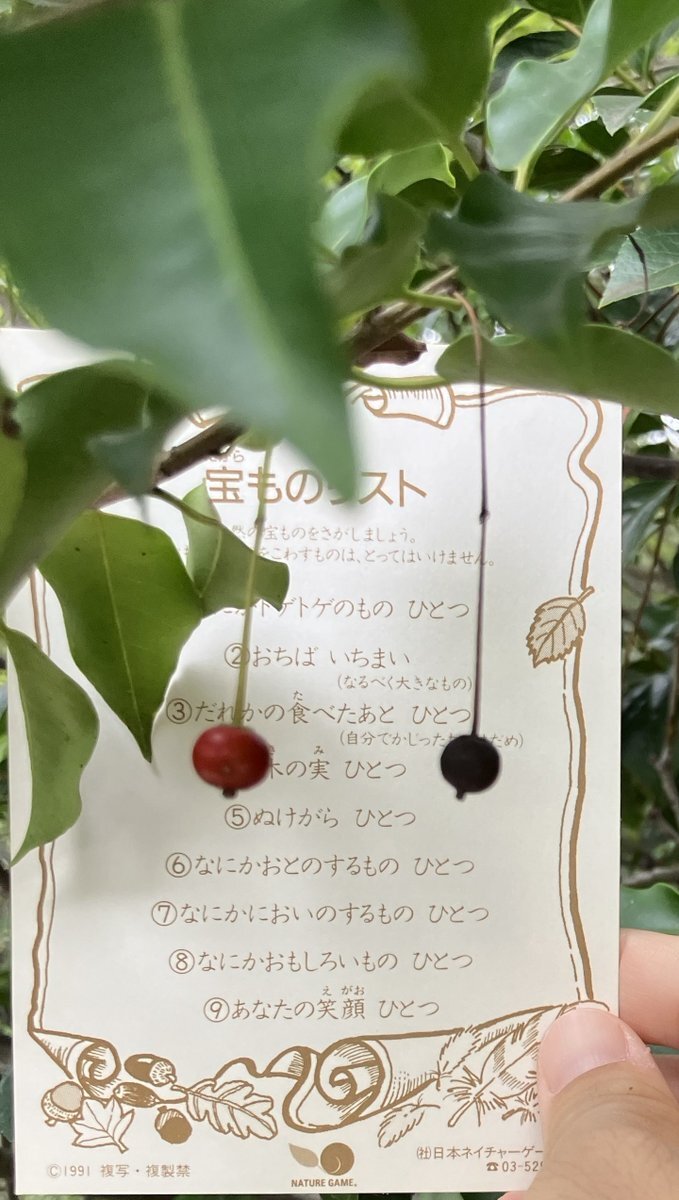 宝ものリスト
然の宝ものをさがしましょう。
をこわすものは、とってはいけません。
トゲトゲのもの ひとつ
②おちば いちまい
(なるべく大きなもの)
③だれかの食べたあと ひとつ
(自分でかじった だめ)
木の実 ひとつ
⑤ぬけがら ひとつ
⑥なにかおとのするもの ひとつ
⑦なにかにおいのするもの ひとつ
⑧なにかおもしろいもの ひとつ
⑨あなたの笑顔 ひとつ
©1991 複写・複製禁
NATURE GAME
(社)日本ネイチャーゲー
☎03-529